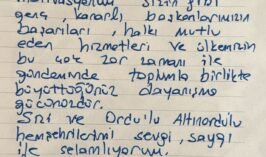 sizin gibi
genç, kararlı başkanlarımızın
başarıları, halkı mutlu
eden hizmetleri ve ülkemizin
bu çok zor zamanı ile
gündeminde toplumla birlikte
büyüttüğünüz dayanışma
gücünüzdür.
Sizi ve Ordulu Altınordulu
hemşehrilerimi sevgi, saygı
ile selamlıyorum.